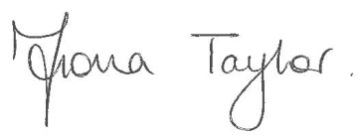 Fiona Taylor.